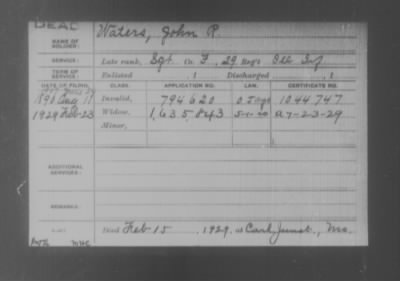 DEAD
NAME OF SOLDIER: Waters, John P.
SERVICE: Late rank, Sgt. Co. F, 29 Reg't Ill Inf
TERM OF SERVICE: Enlisted , 1 Discharged , 1
DATE OF FILING. CLASS. APPLICATION NO. LAW. CERTIFICATE NO.
Aug 11 Invalid, 794620 1044747
1929 Feb-23 Widow, 1,635,843 5-1-20 A7-23-29
Minor,
ADDITIONAL SERVICES:
REMARKS:
Died Feb 15, 1929, at Carl Junct., Mo.
MHC